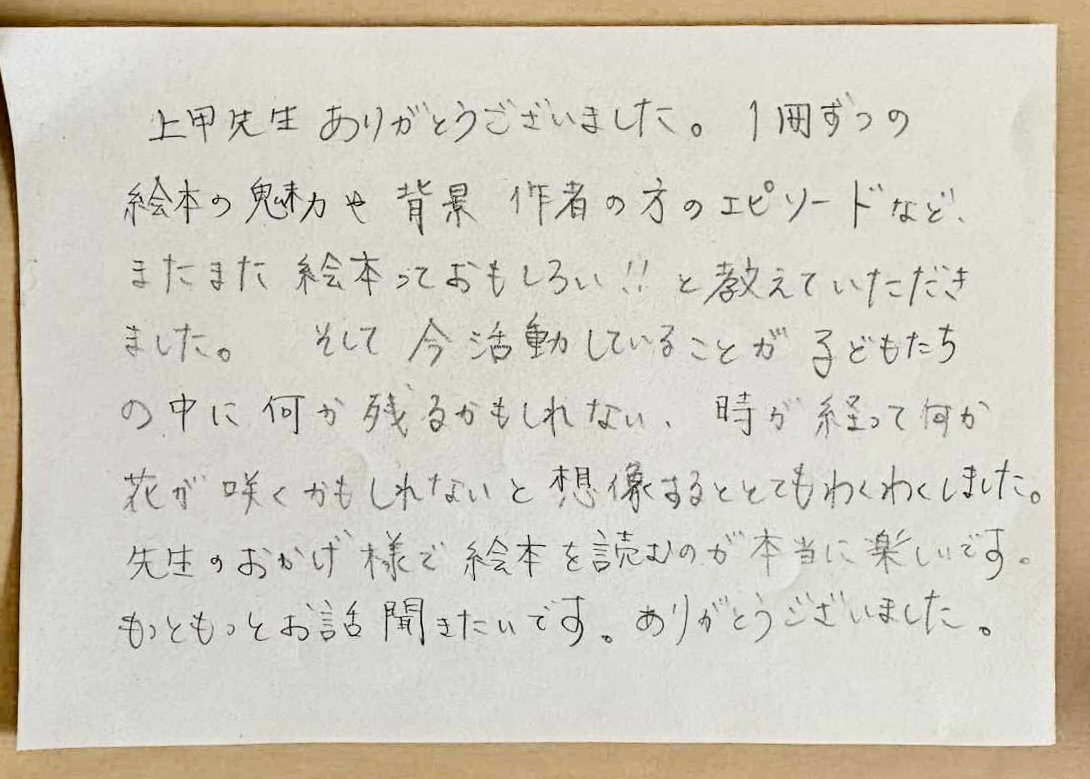 上甲先生 ありがとうございました。 1冊ずつの
絵本の魅力や 背景 作者の方のエピソードなど、
またまた 絵本っておもしろい!! と教えていただき
ました。 そして 今 活動していることが 子どもたち
の中に 何か 残るかもしれない、 時が 経って何か
花が 咲くかもしれないと 想像するととてもわくわくしました。
先生のおかげ様で 絵本を読むのが本当に楽しいです。
もっともっとお話 聞きたいです。ありがとうございました。